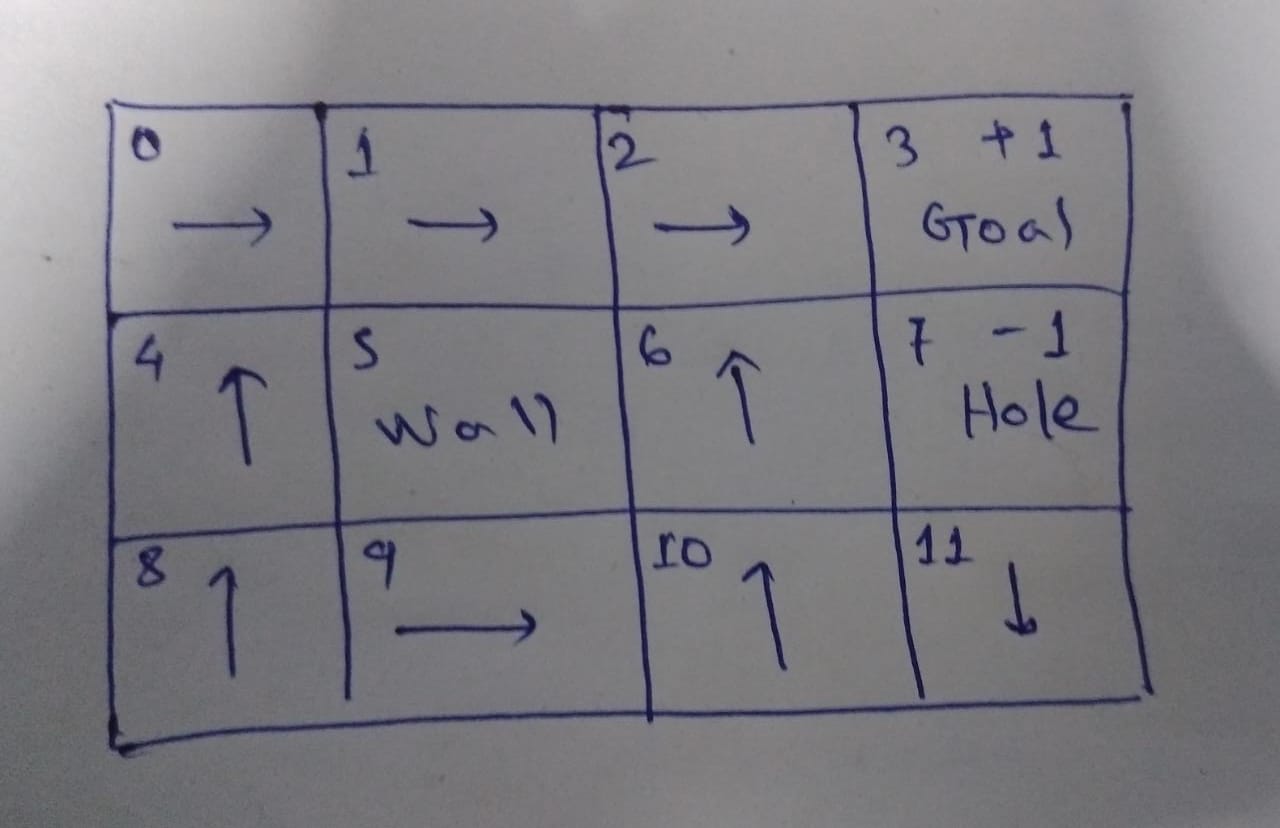 0 → 1 → 2 → 3 +1
Goal
4 ↑ 5 Wall 6 ↑ 7 -1
Hole
8 ↑ 9 → 10 ↑ 11 ↓